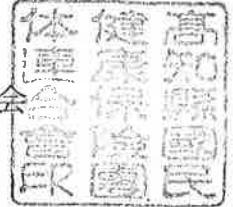 高知縣國民
健康保險團
体連合會印
会